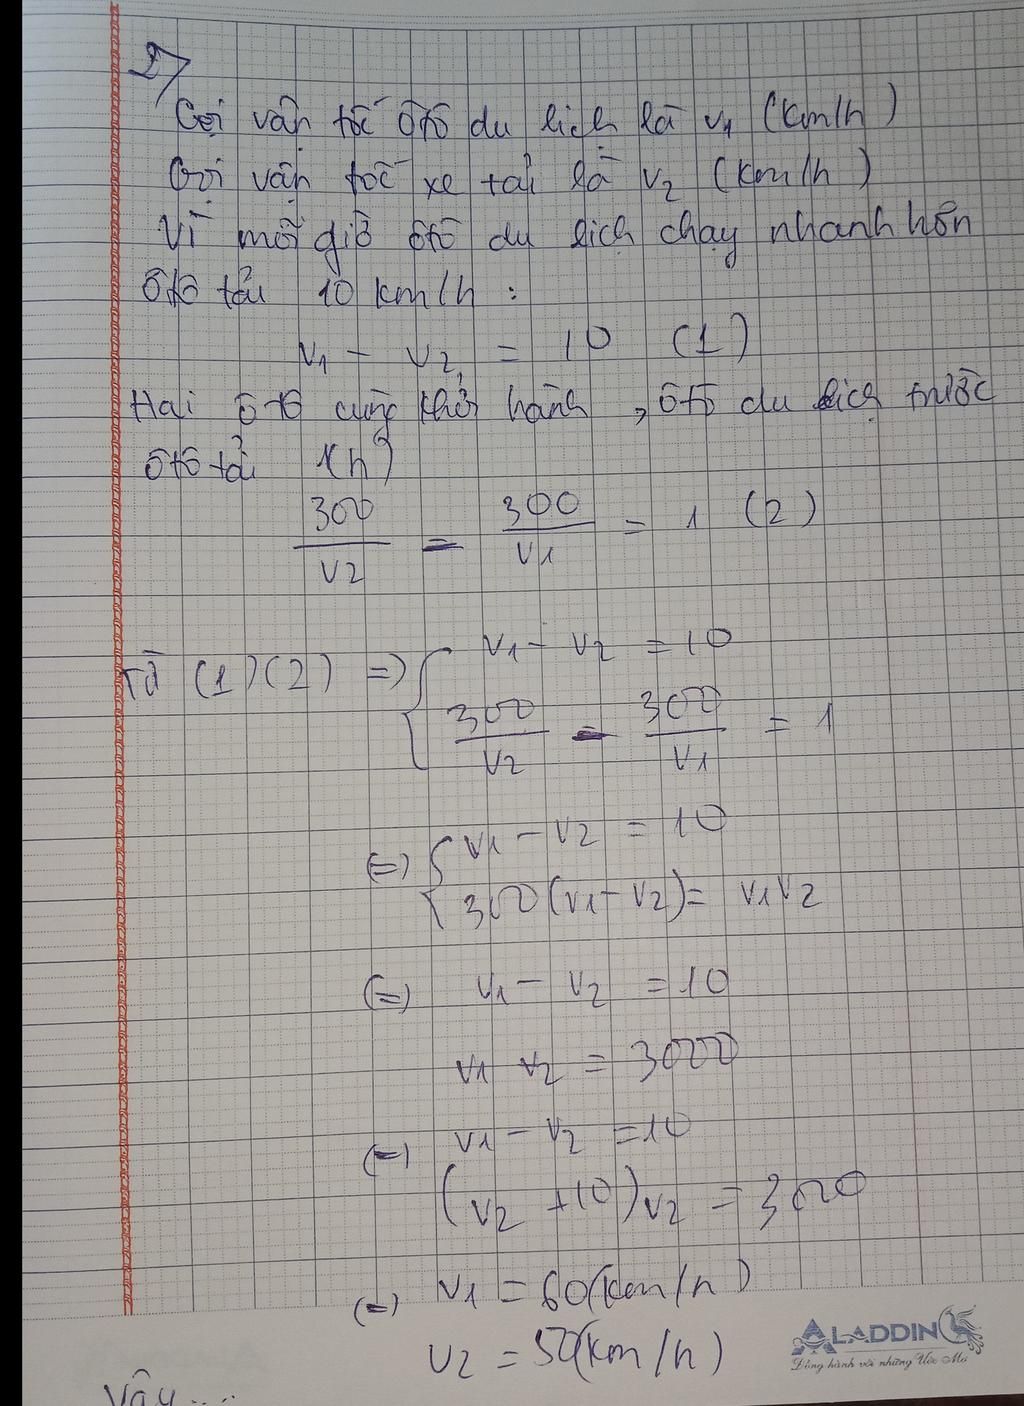 2)
Gọi vận tốc ôtô du lịch là v1 (km/h)
Gọi vận tốc xe tải là v2 (km/h)
Vì mỗi giờ ôtô du lịch chạy nhanh hơn
ôtô tải 10 km/h :
v1 - v2 = 10 (1)
Hai ôtô cùng khởi hành, ôtô du lịch trước
ôtô tải 1(h)
300/v2 - 300/v1 = 1 (2)
Từ (1)(2) => { v1 - v2 = 10
300/v2 - 300/v1 = 1
(=) { v1 - v2 = 10
300(v1 - v2) = v1v2
(=) v1 - v2 = 10
v1 v2 = 3000
(=) v1 - v2 = 10
(v2 + 10)v2 = 3000
(=) v1 = 60(km/h)
v2 = 50(km/h)
ALADDIN
Đồng hành với những Ước Mơ
Vậy....